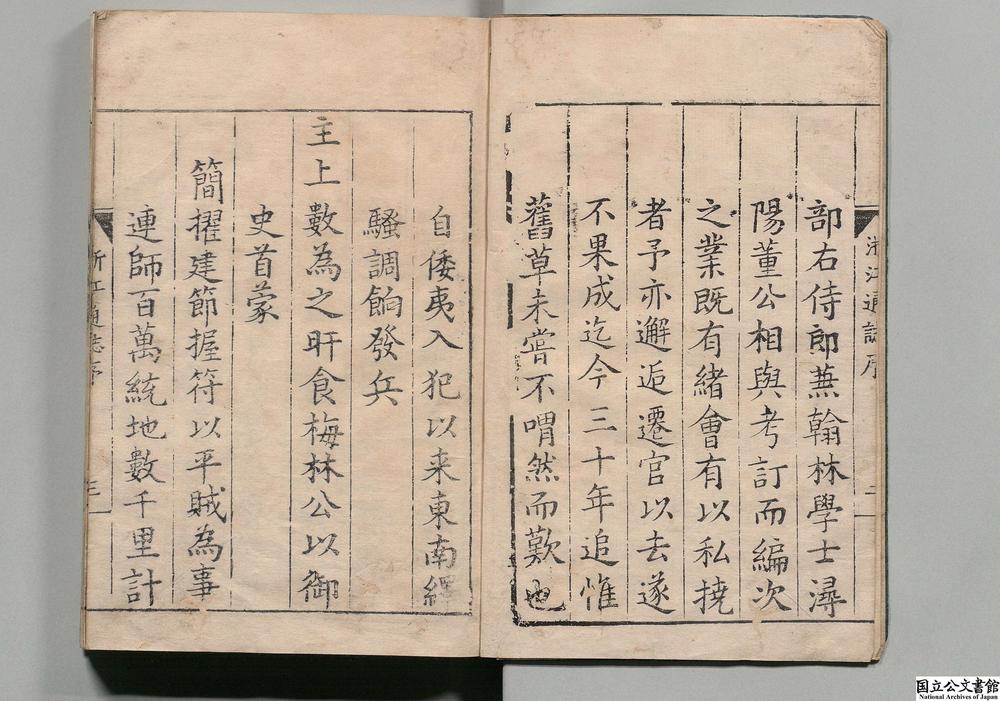 浙江通誌序
二
部右侍郎兼翰林學士潯
陽董公相與考訂而編次
之業既有緒會有以私撓
者予亦邂逅遷官以去遂
不果成迄今三十年追惟
舊草未嘗不喟然而歎也
自倭夷入犯以来東南繹
騷調餉發兵
主上數為之旰食梅林公以御
史首蒙
簡擢建節握符以平賊為事
連師百萬統地數千里計
浙江通志序
三
国立公文書館
National Archives of Japan